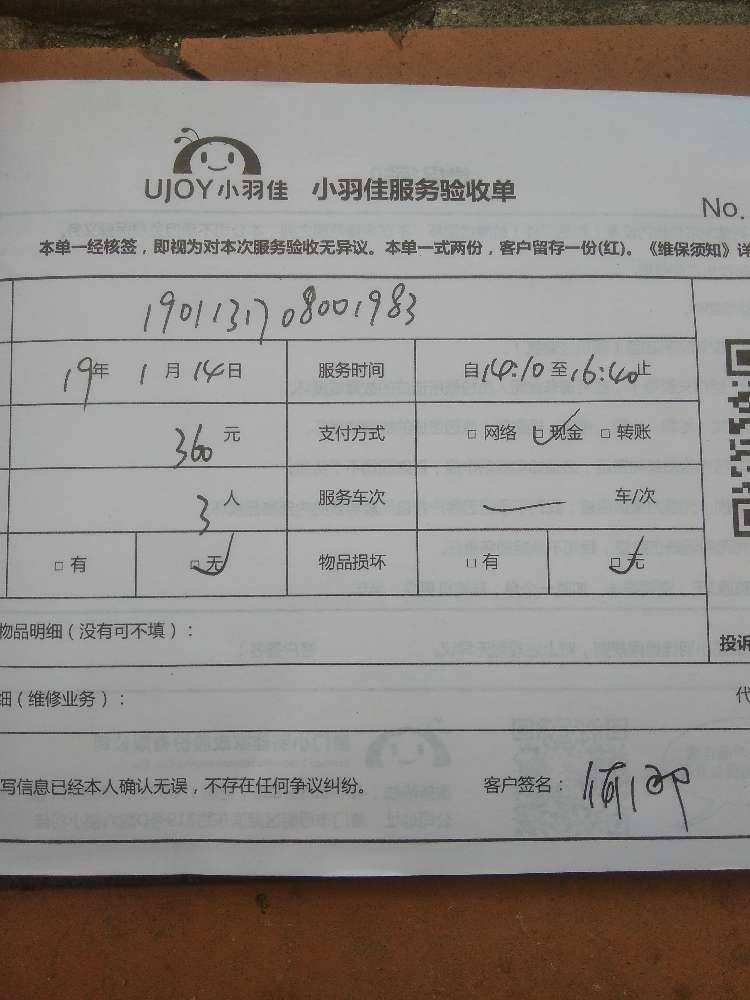 UJOY小羽佳 小羽佳服务验收单
No.
本单一经核签，即视为对本次服务验收无异议。本单一式两份，客户留存一份(红)。《维保须知》详
1901131708001983
19年 1月 14日 服务时间 自14:10至16:40止
360元 支付方式 □ 网络 □ 现金 □ 转账
3人 服务车次 — 车/次
□ 有 □ 无 物品损坏 □ 有 □ 无
物品明细（没有可不填）：
投诉
细（维修业务）：
代
写信息已经本人确认无误，不存在任何争议纠纷。 客户签名：